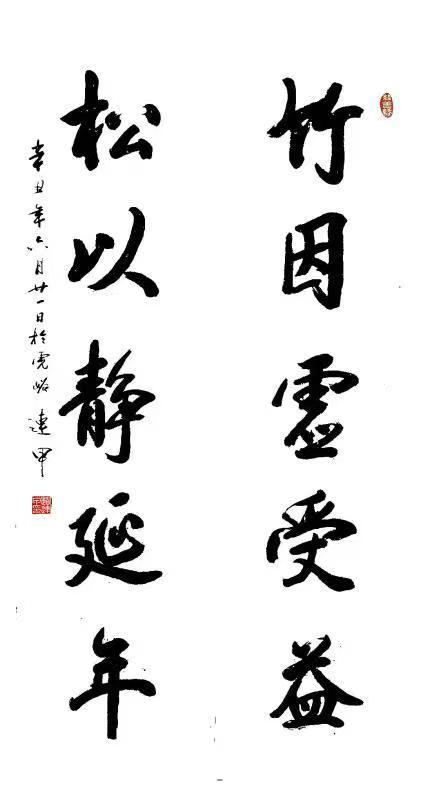 竹因虚受益
松以静延年
辛丑年六月廿一日於虎峪 连甲